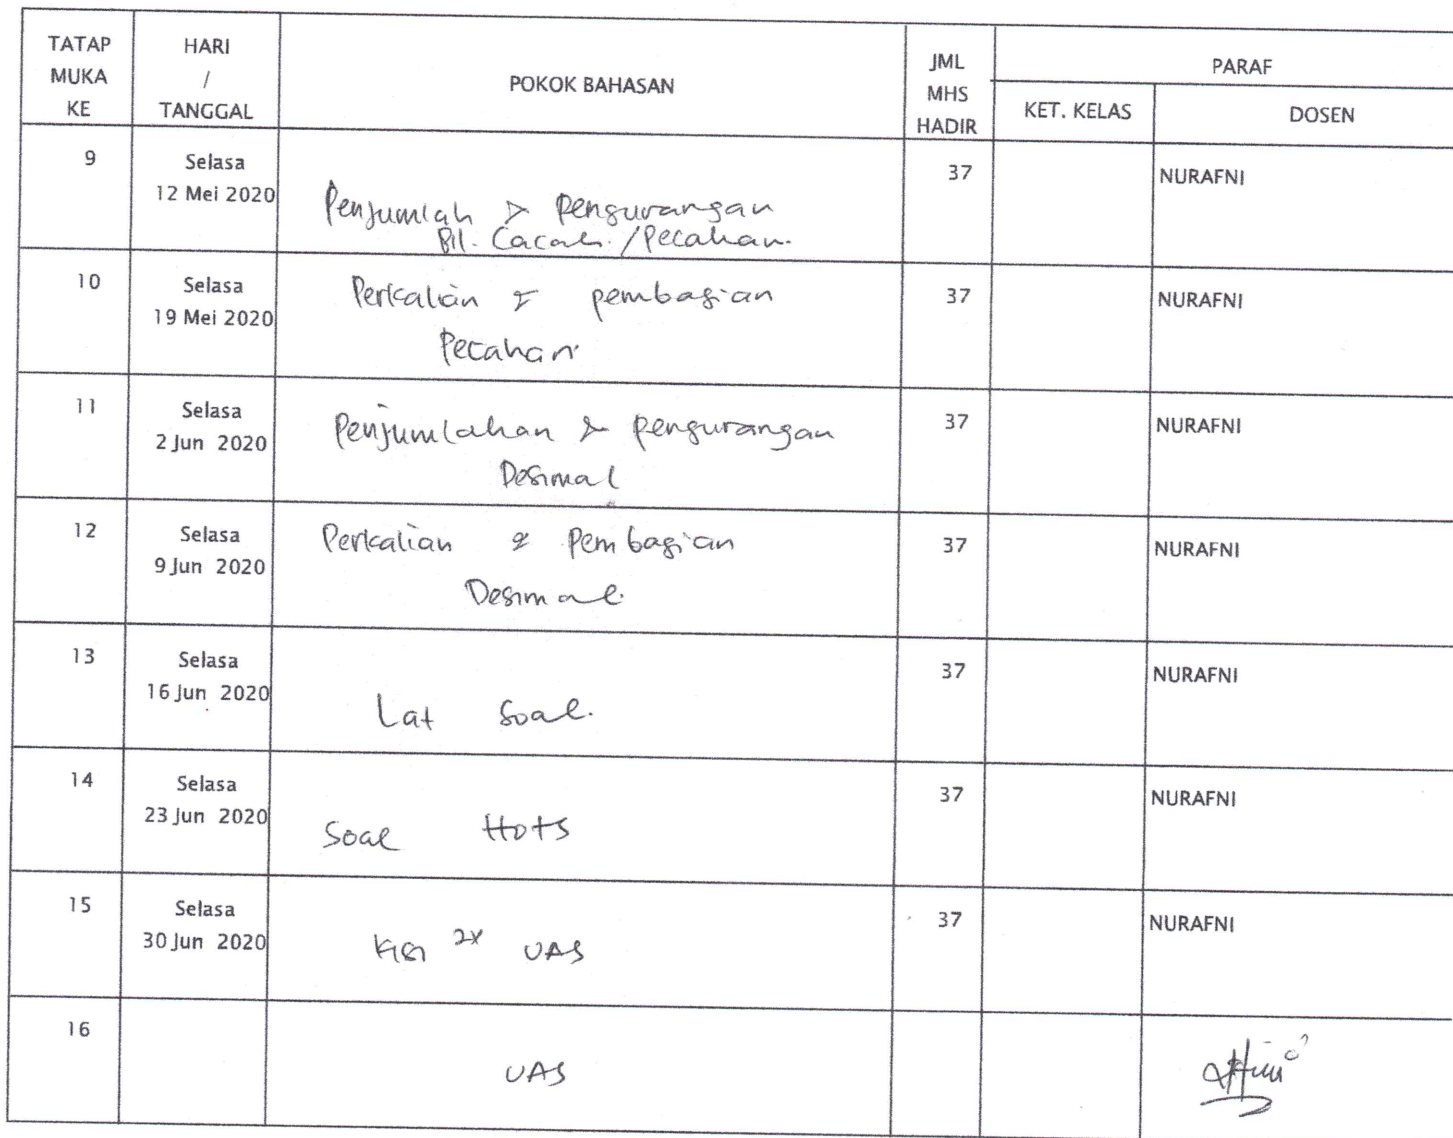 TATAP MUKA KE
HARI / TANGGAL
POKOK BAHASAN
JML MHS HADIR
PARAF
KET. KELAS
DOSEN
9
Selasa
12 Mei 2020
Penjumlah & pengurangan
Bil. Cacah./Pecahan.
37
NURAFNI
10
Selasa
19 Mei 2020
Perkalian & pembagian
Pecahan
37
NURAFNI
11
Selasa
2 Jun 2020
Penjumlahan & pengurangan
Desimal
37
NURAFNI
12
Selasa
9 Jun 2020
Perkalian & Pembagian
Desimal.
37
NURAFNI
13
Selasa
16 Jun 2020
Lat Soal.
37
NURAFNI
14
Selasa
23 Jun 2020
Soal Hots
37
NURAFNI
15
Selasa
30 Jun 2020
Kisi 2x UAS
37
NURAFNI
16
UAS